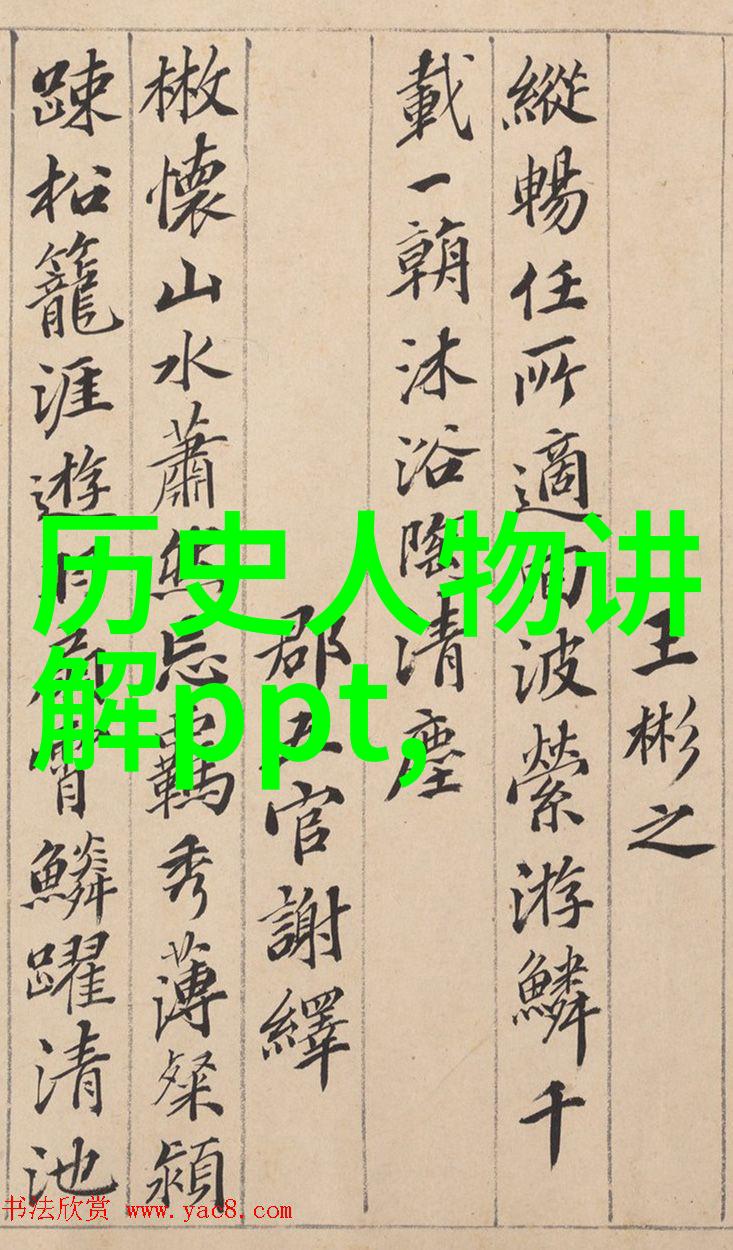 王彬之
縱暢任所適回波縈游鱗千
載一朝沐浴陶清塵
郡五官謝繹
散懷山水蕭然忘羈秀薄粲穎
踈松籠涯遊羽扇霄鱗躍清池
历史人物讲
解ppt,
书法欣赏 www.yac8.com